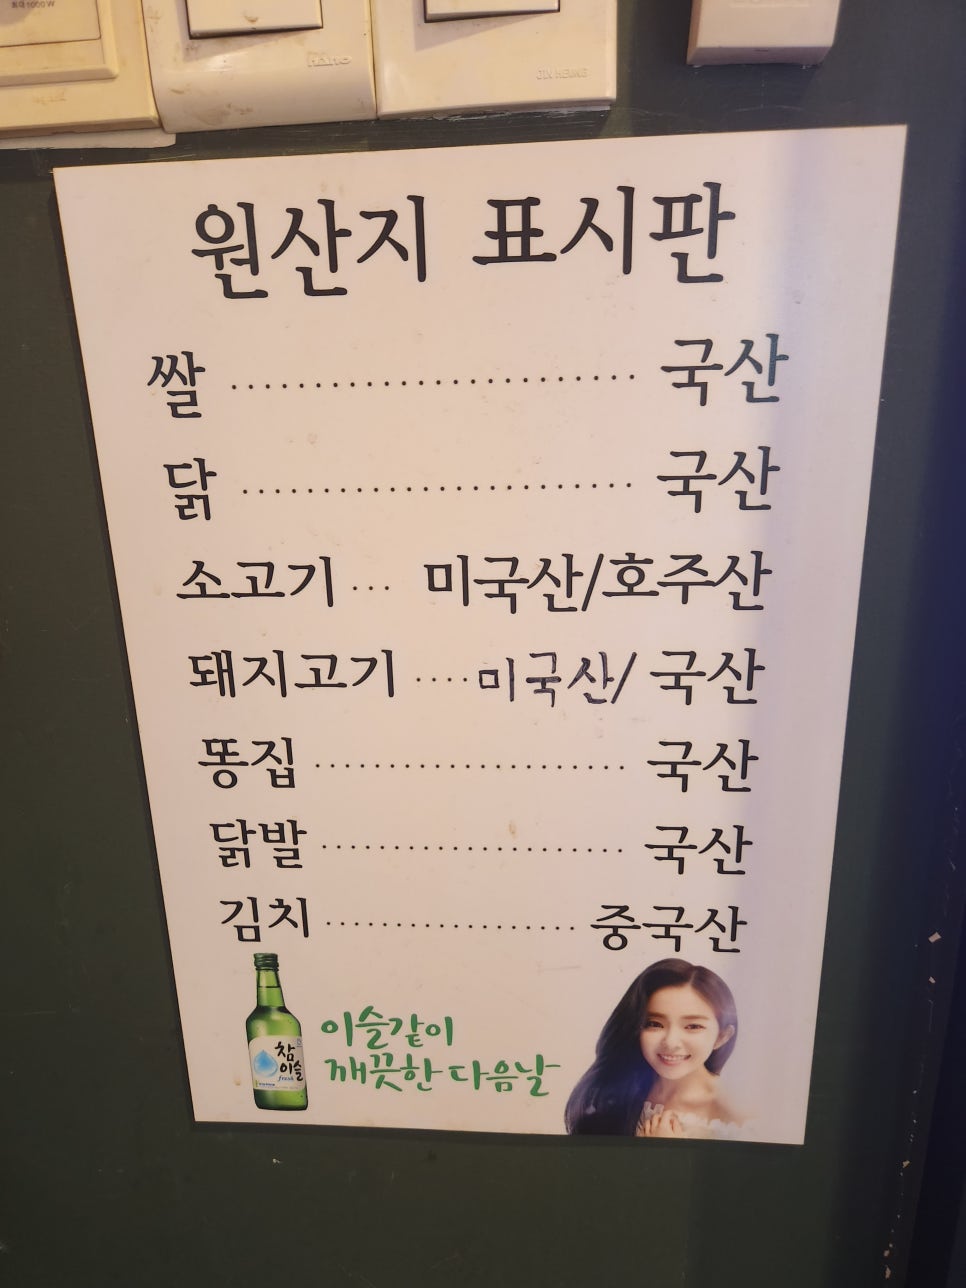 최대 1000W
Hano
JIN HEUNG
원산지 표시판
쌀 ............................. 국산
닭 ............................. 국산
소고기 ... 미국산/호주산
돼지고기 .... 미국산/ 국산
똥집 ...................... 국산
닭발 ...................... 국산
김치 .................. 중국산
참이슬
fresh
이슬같이
깨끗한 다음날